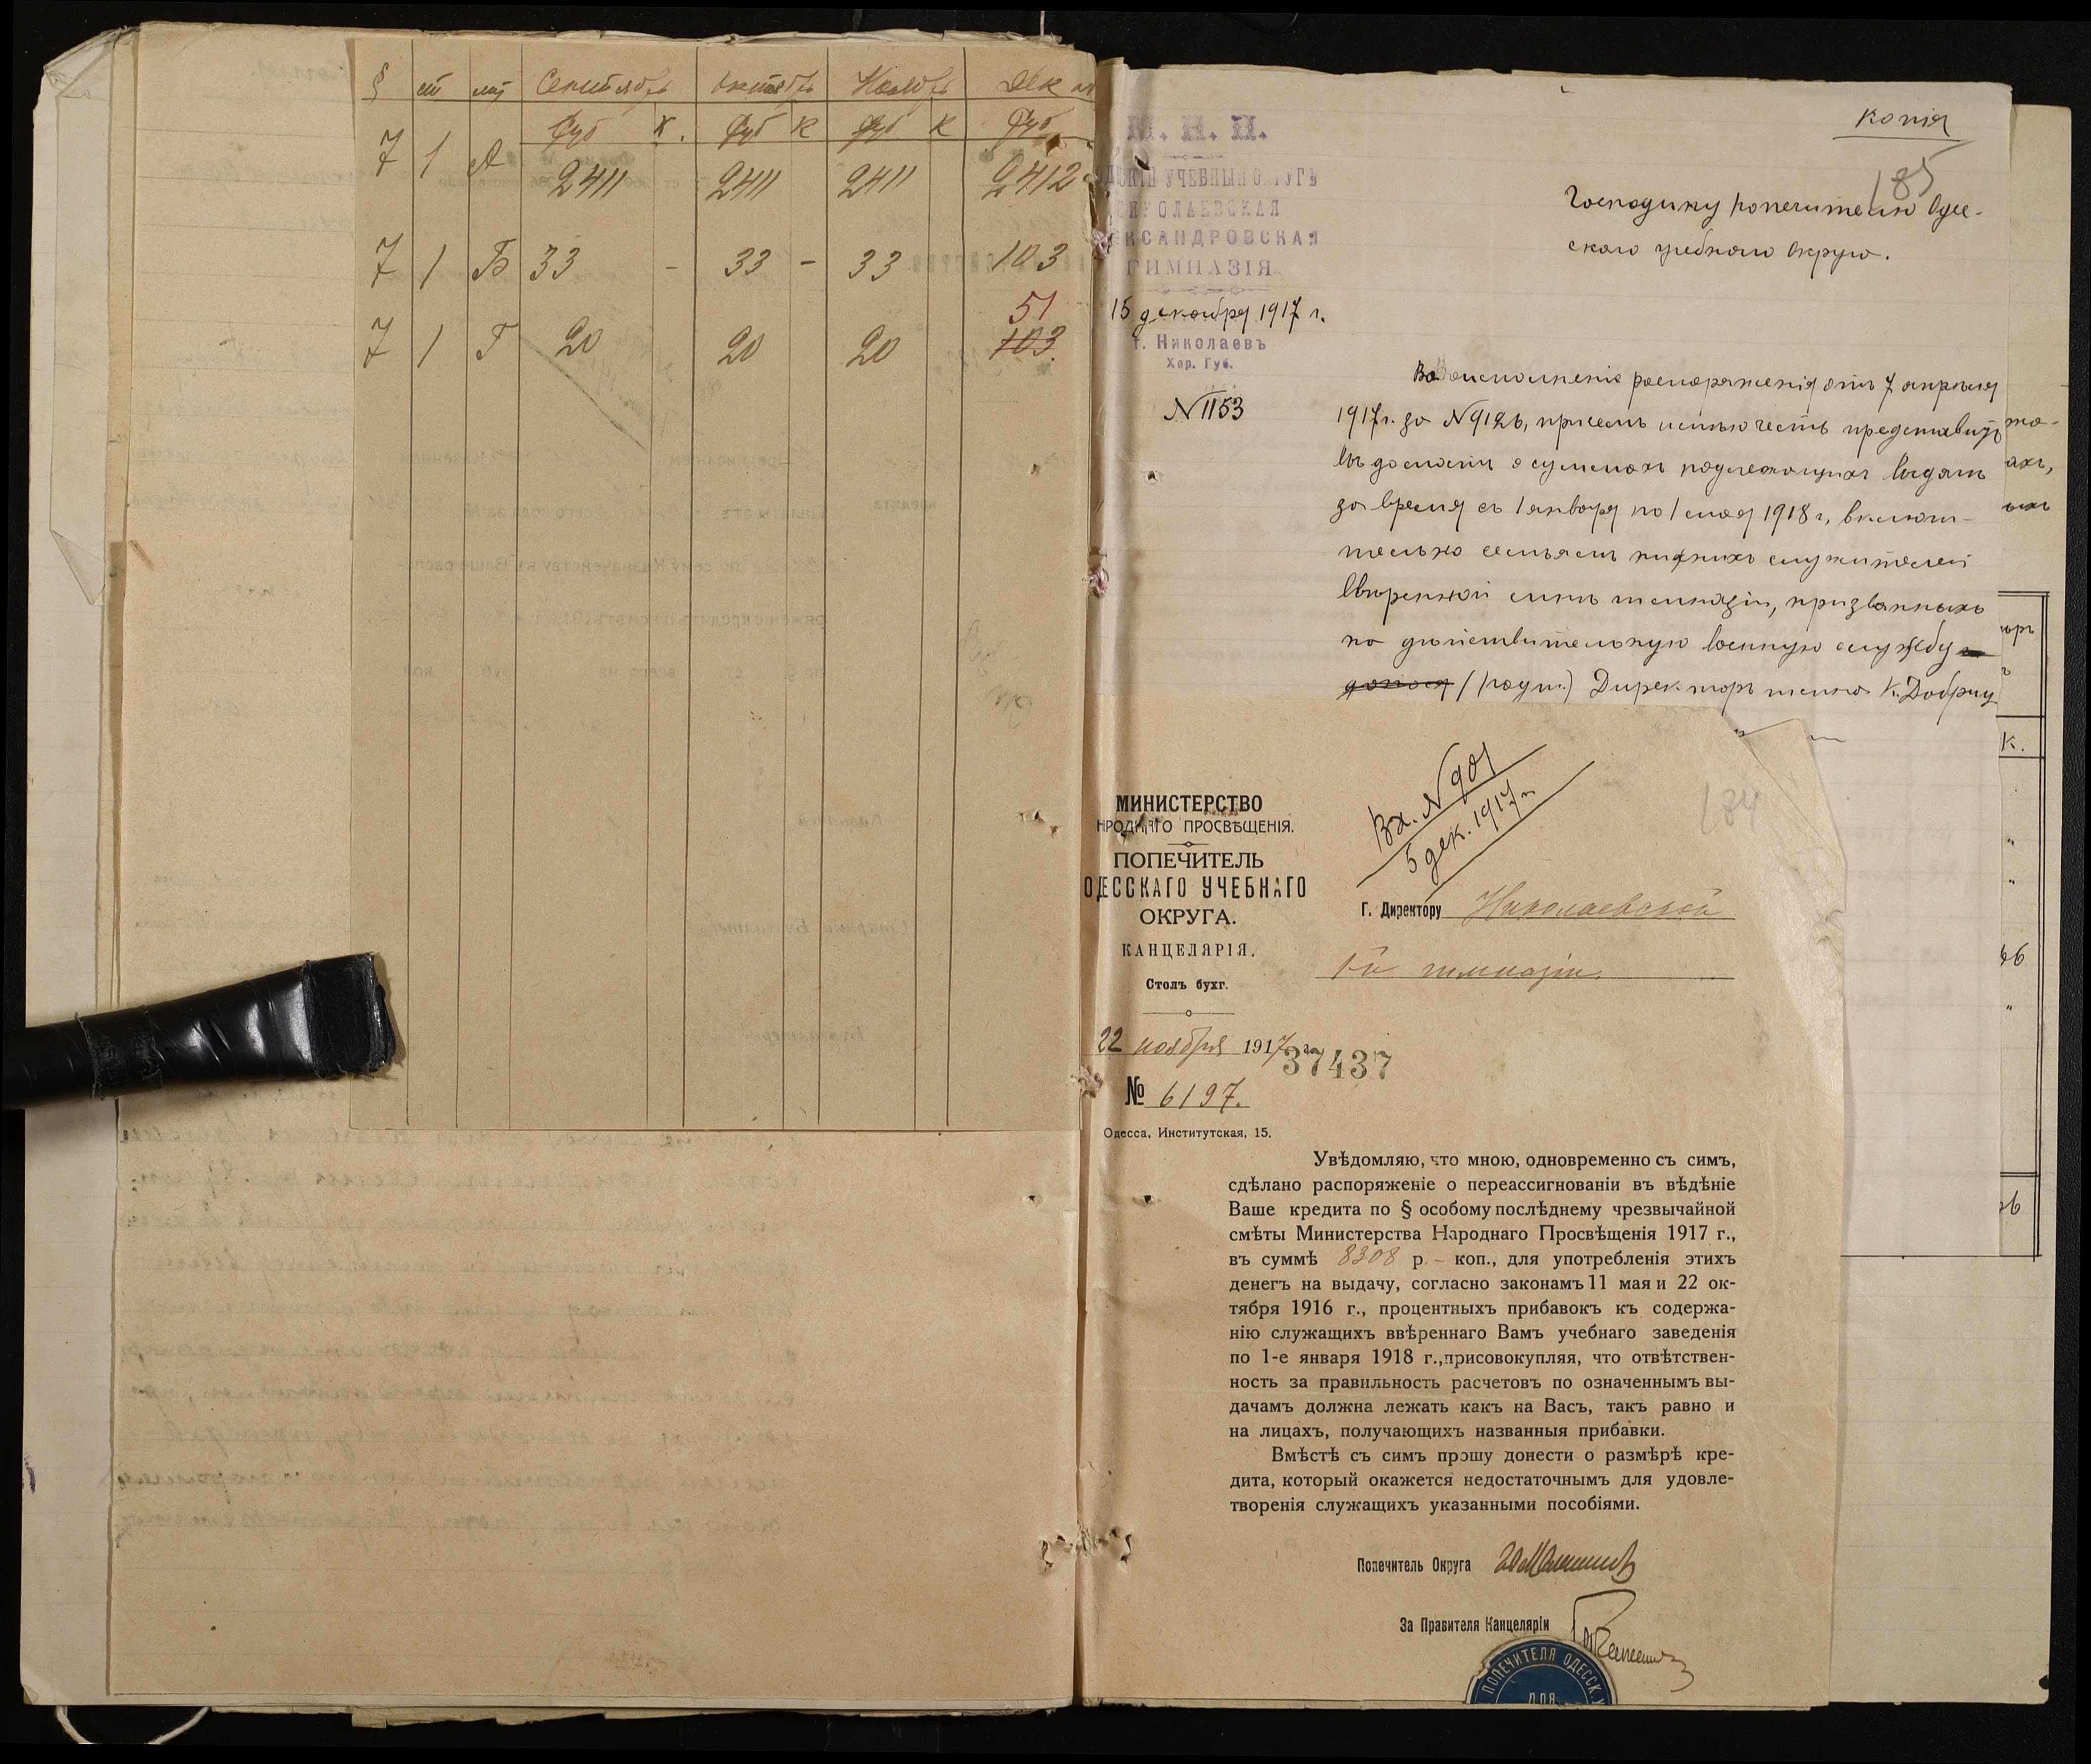 § ст лит Сентябрь Октябрь Ноябрь Дек
Руб К. Руб К Руб К Руб
7 1 А 2411 2411 2411 2412
7 1 Б 33 - 33 - 33 103
51
7 1 Г 20 20 20 103
М. Н. П.
УЧЕБНЫЙ ОКРУГЪ
НИКОЛАЕВСКАЯ
КСАНДРОВСКАЯ
ГИМНАЗІЯ
15 декабря 1917 г.
г. Николаевъ
Хер. Губ.
№ 1153
Копія
185
Господину Попечителю Одес-
скаго учебнаго округа.
Во исполненіе распоряженія отъ 7 апрѣля
1917 г. за № 9126, при семъ имѣю честь представить
вѣдомости о суммахъ подлежащихъ выдачѣ
за время съ 1 января по 1 мая 1918 г, включи-
тельно семьямъ нижнихъ служителей
ввѣренной мнѣ гимназіи, призванныхъ
на дѣйствительную военную службу
(подп.) Директоръ гимн. К. Добриц
ахъ,
К.
МИНИСТЕРСТВО
НРОДНАГО ПРОСВѢЩЕНІЯ.
ПОПЕЧИТЕЛЬ
ОДЕССКАГО УЧЕБНАГО
ОКРУГА.
КАНЦЕЛЯРІЯ.
Столъ бухг.
22 ноября 1917 г.
37437
№ 6197.
Одесса, Институтская, 15.
Вх. № 901
5 дек. 1917 г.
184
Г. Директору Николаевской
1-й гимназіи.
Увѣдомляю, что мною, одновременно съ симъ,
сдѣлано распоряженіе о переассигнованіи въ вѣдѣніе
Ваше кредита по § особому послѣднему чрезвычайной
смѣты Министерства Народнаго Просвѣщенія 1917 г.,
въ суммѣ 8308 р. – коп., для употребленія этихъ
денегъ на выдачу, согласно законамъ 11 мая и 22 ок-
тября 1916 г., процентныхъ прибавокъ къ содержа-
нію служащихъ ввѣреннаго Вамъ учебнаго заведенія
по 1-е января 1918 г.,присовокупляя, что отвѣтствен-
ность за правильность расчетовъ по означеннымъ вы-
дачамъ должна лежать какъ на Васъ, такъ равно и
на лицахъ, получающихъ названныя прибавки.
Вмѣстѣ съ симъ прошу донести о размѣрѣ кре-
дита, который окажется недостаточнымъ для удовле-
творенія служащихъ указанными пособіями.
Попечитель Округа
За Правителя Канцеляріи
ПОПЕЧИТЕЛЯ ОДЕССК. У
ДЛЯ